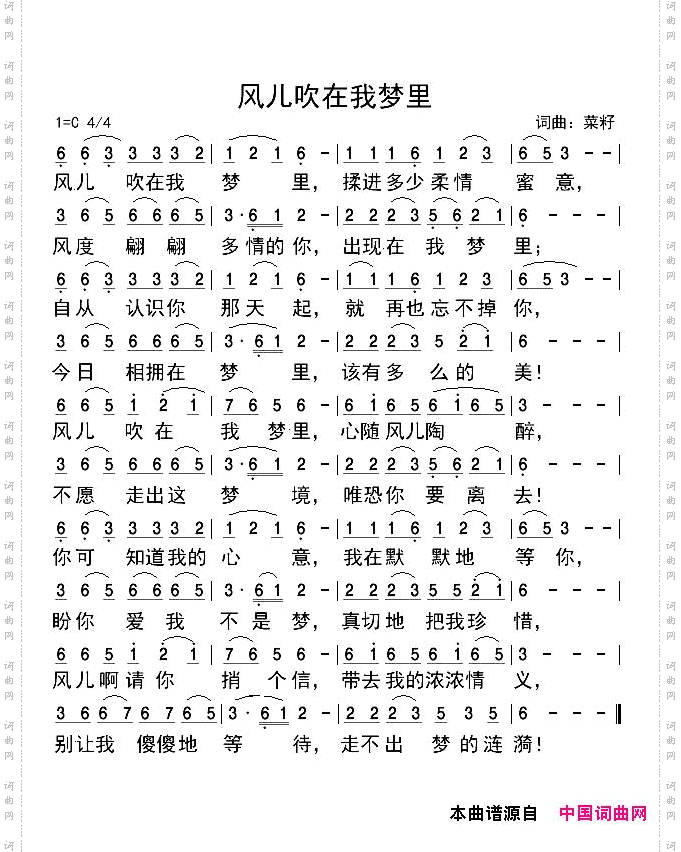 风儿吹在我梦里
1=C 4/4 词曲：菜籽
6 6 3 3 3 3 2 | 1 2 1 6 - | 1 1 1 6 1 2 3 | 6 5 3 - - |
风儿 吹在我 梦 里， 揉进多少柔情 蜜 意，
3 6 5 6 6 6 5 | 3· 6 1 2 - | 2 2 2 3 5 6 2 1 | 6 - - - |
风度 翩 翩 多情的你， 出现在 我 梦 里；
6 6 3 3 3 3 2 | 1 2 1 6 - | 1 1 1 6 1 2 3 | 6 5 3 - - |
自从 认识你 那天 起， 就 再也忘不掉 你，
3 6 5 6 6 6 5 | 3· 6 1 2 - | 2 2 2 3 5 2 1 | 6 - - - |
今日 相拥在 梦 里， 该有多 么的 美！
6 6 5 1 2 1 | 7 6 5 6 - | 6 1 6 5 6 1 6 5 | 3 - - - |
风儿 吹在 我 梦里， 心随风儿陶 醉，
3 6 5 6 6 6 5 | 3· 6 1 2 - | 2 2 2 3 5 6 2 1 | 6 - - - |
不愿 走出这 梦 境， 唯恐你 要 离 去！
6 6 3 3 3 3 2 | 1 2 1 6 - | 1 1 1 6 1 2 3 | 6 5 3 - - |
你可 知道我的 心 意， 我在默 默地 等你，
3 6 5 6 6 6 5 | 3· 6 1 2 - | 2 2 2 3 5 5 2 1 | 6 - - - |
盼你 爱 我 不 是 梦， 真切地 把我珍 惜，
6 6 5 1 2 1 | 7 6 5 6 - | 6 1 6 5 6 1 6 5 | 3 - - - |
风儿啊请你 捎 个信， 带去我的浓浓情 义，
3 6 6 6 7 6 7 6 5 | 3· 6 1 2 - | 2 2 2 3 5 | 6 - - - ‖
别让我 傻傻地 等 待， 走不出 梦的涟漪！
本曲谱源自 中国词曲网
词曲网